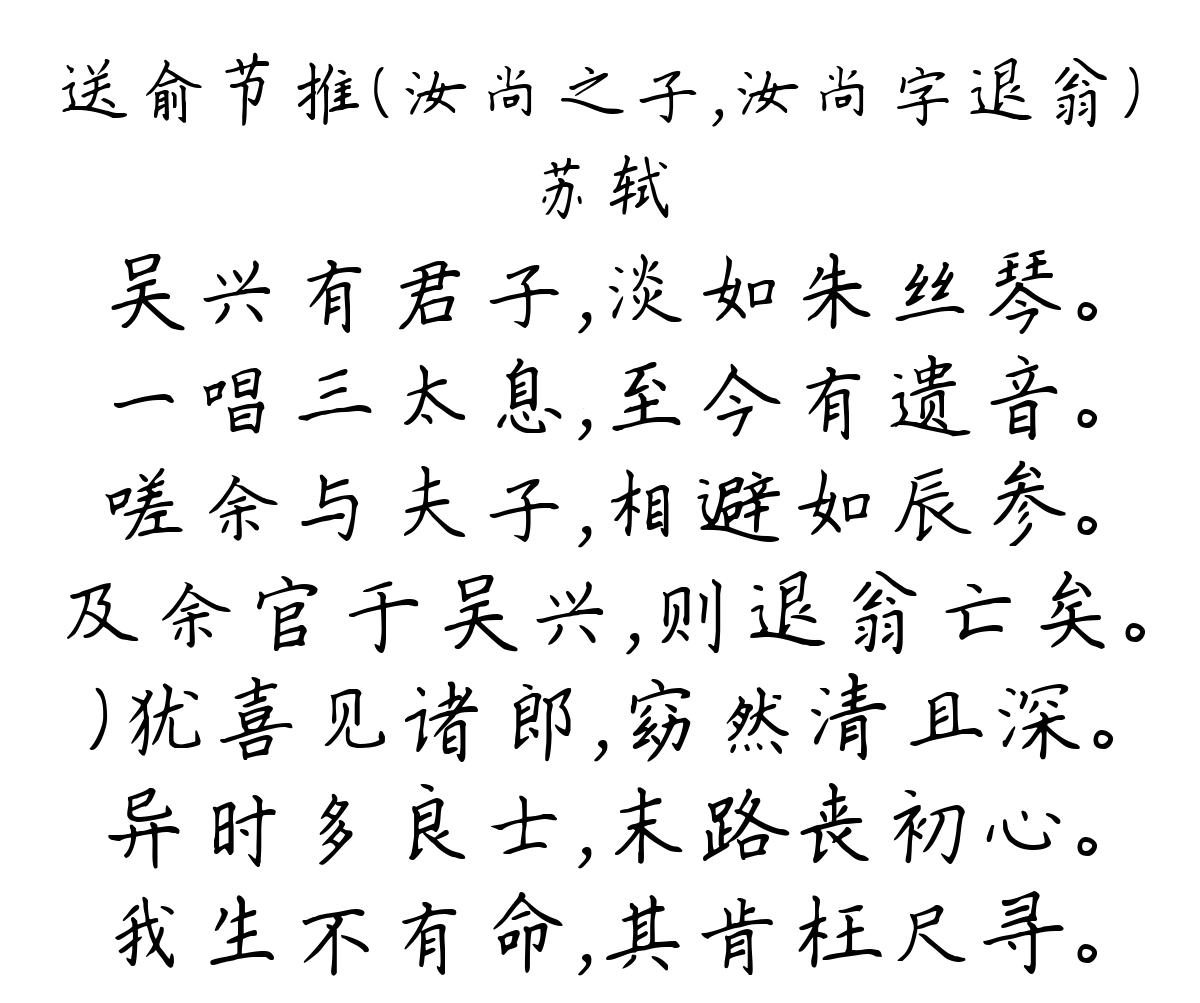 送俞节推(汝尚之子,汝尚字退翁)
苏轼
吴兴有君子,淡如朱丝琴。
一唱三太息,至今有遗音。
嗟余与夫子,相避如辰参。
及余官于吴兴,则退翁亡矣。
)犹喜见诸郎,窈然清且深。
异时多良士,末路丧初心。
我生不有命,其肯枉尺寻。